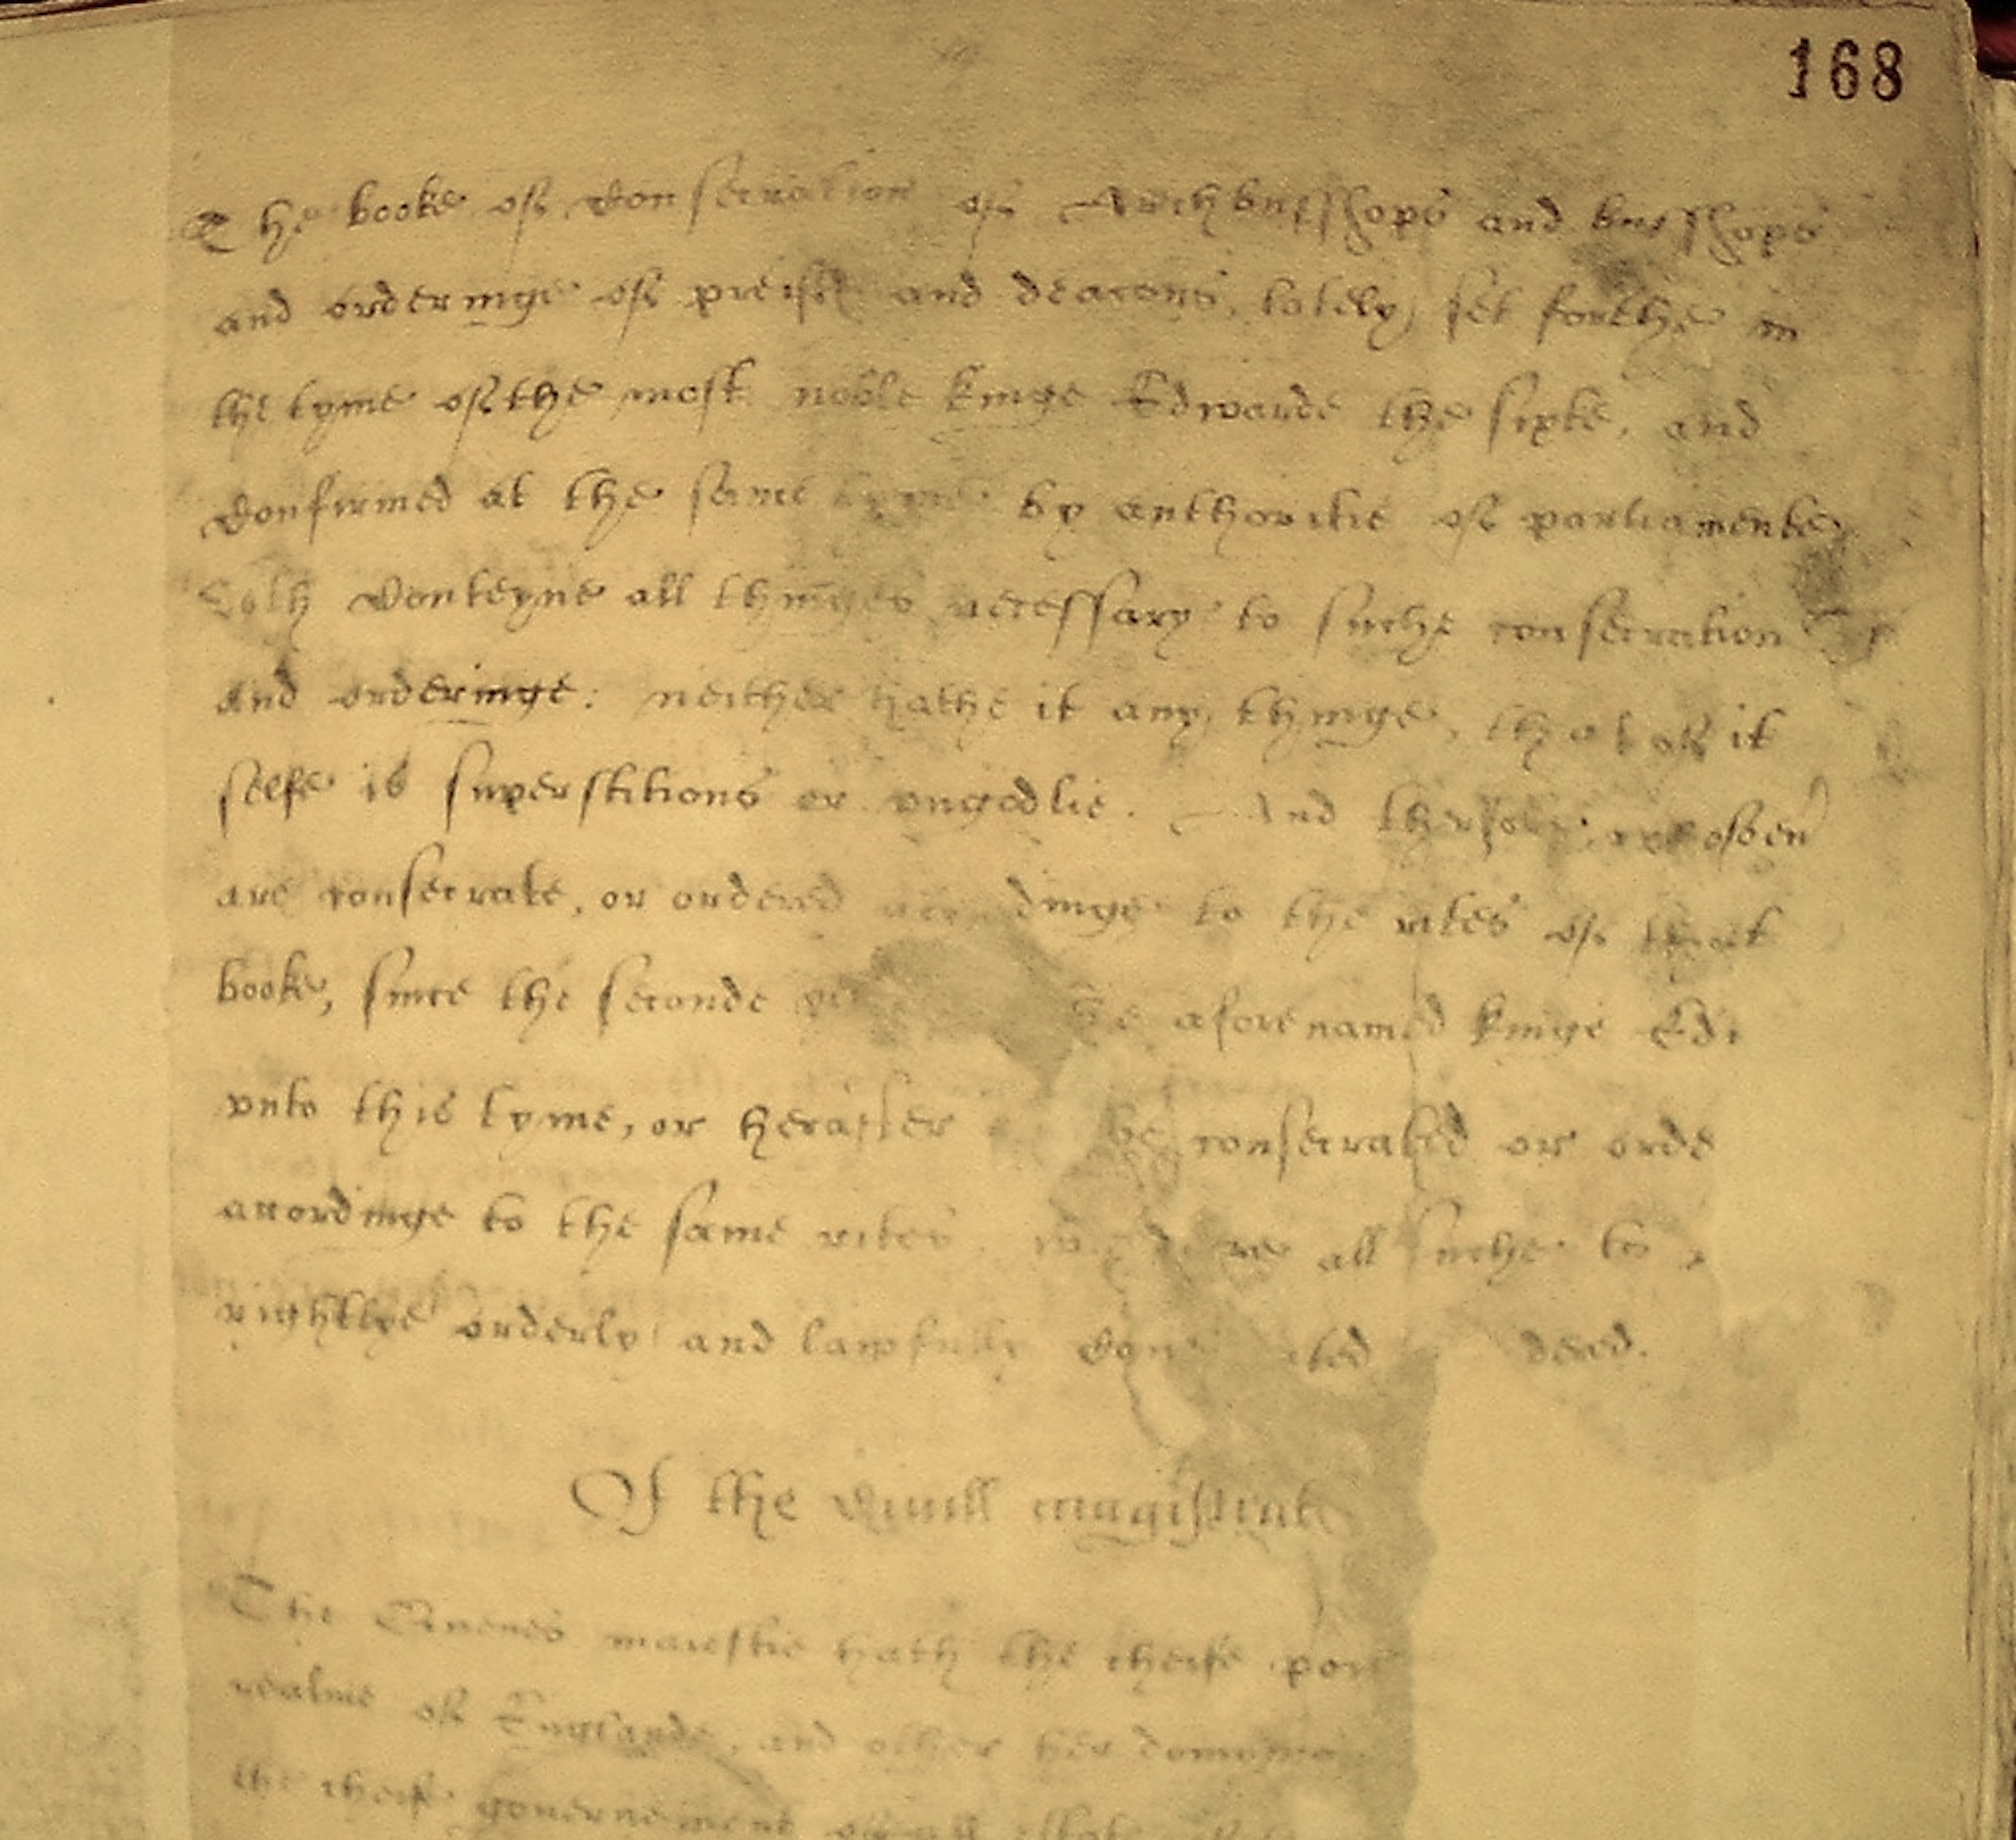 168
The booke of Consecration of Archbusshops and busshops
and orderinge of preistes and deacons, lately set forthe in
the tyme of the most noble kinge Edwarde the sixte, and
Confirmed at the same tyme by authoritie of parliamente,
Doth Conteyne all thinges necessary to suche consecration
and orderinge: neither hathe it any thinge, that of it
selfe is superstitious or vngodlie. And therfore whosoeuer
are consecrate, or ordered dinge to the rites of that
booke, since the seconde aforenamed kinge Ed
vnto this tyme, or herafter be consecrated or orde
accordinge to the same rites, all suche to
rightlye orderly and lawfully Con ted dered.
Of the Ciuill magistrat
The Queenes maiestie hath the cheife pow
realme of Englande, and other her dominio
the cheife gouernement of all estat